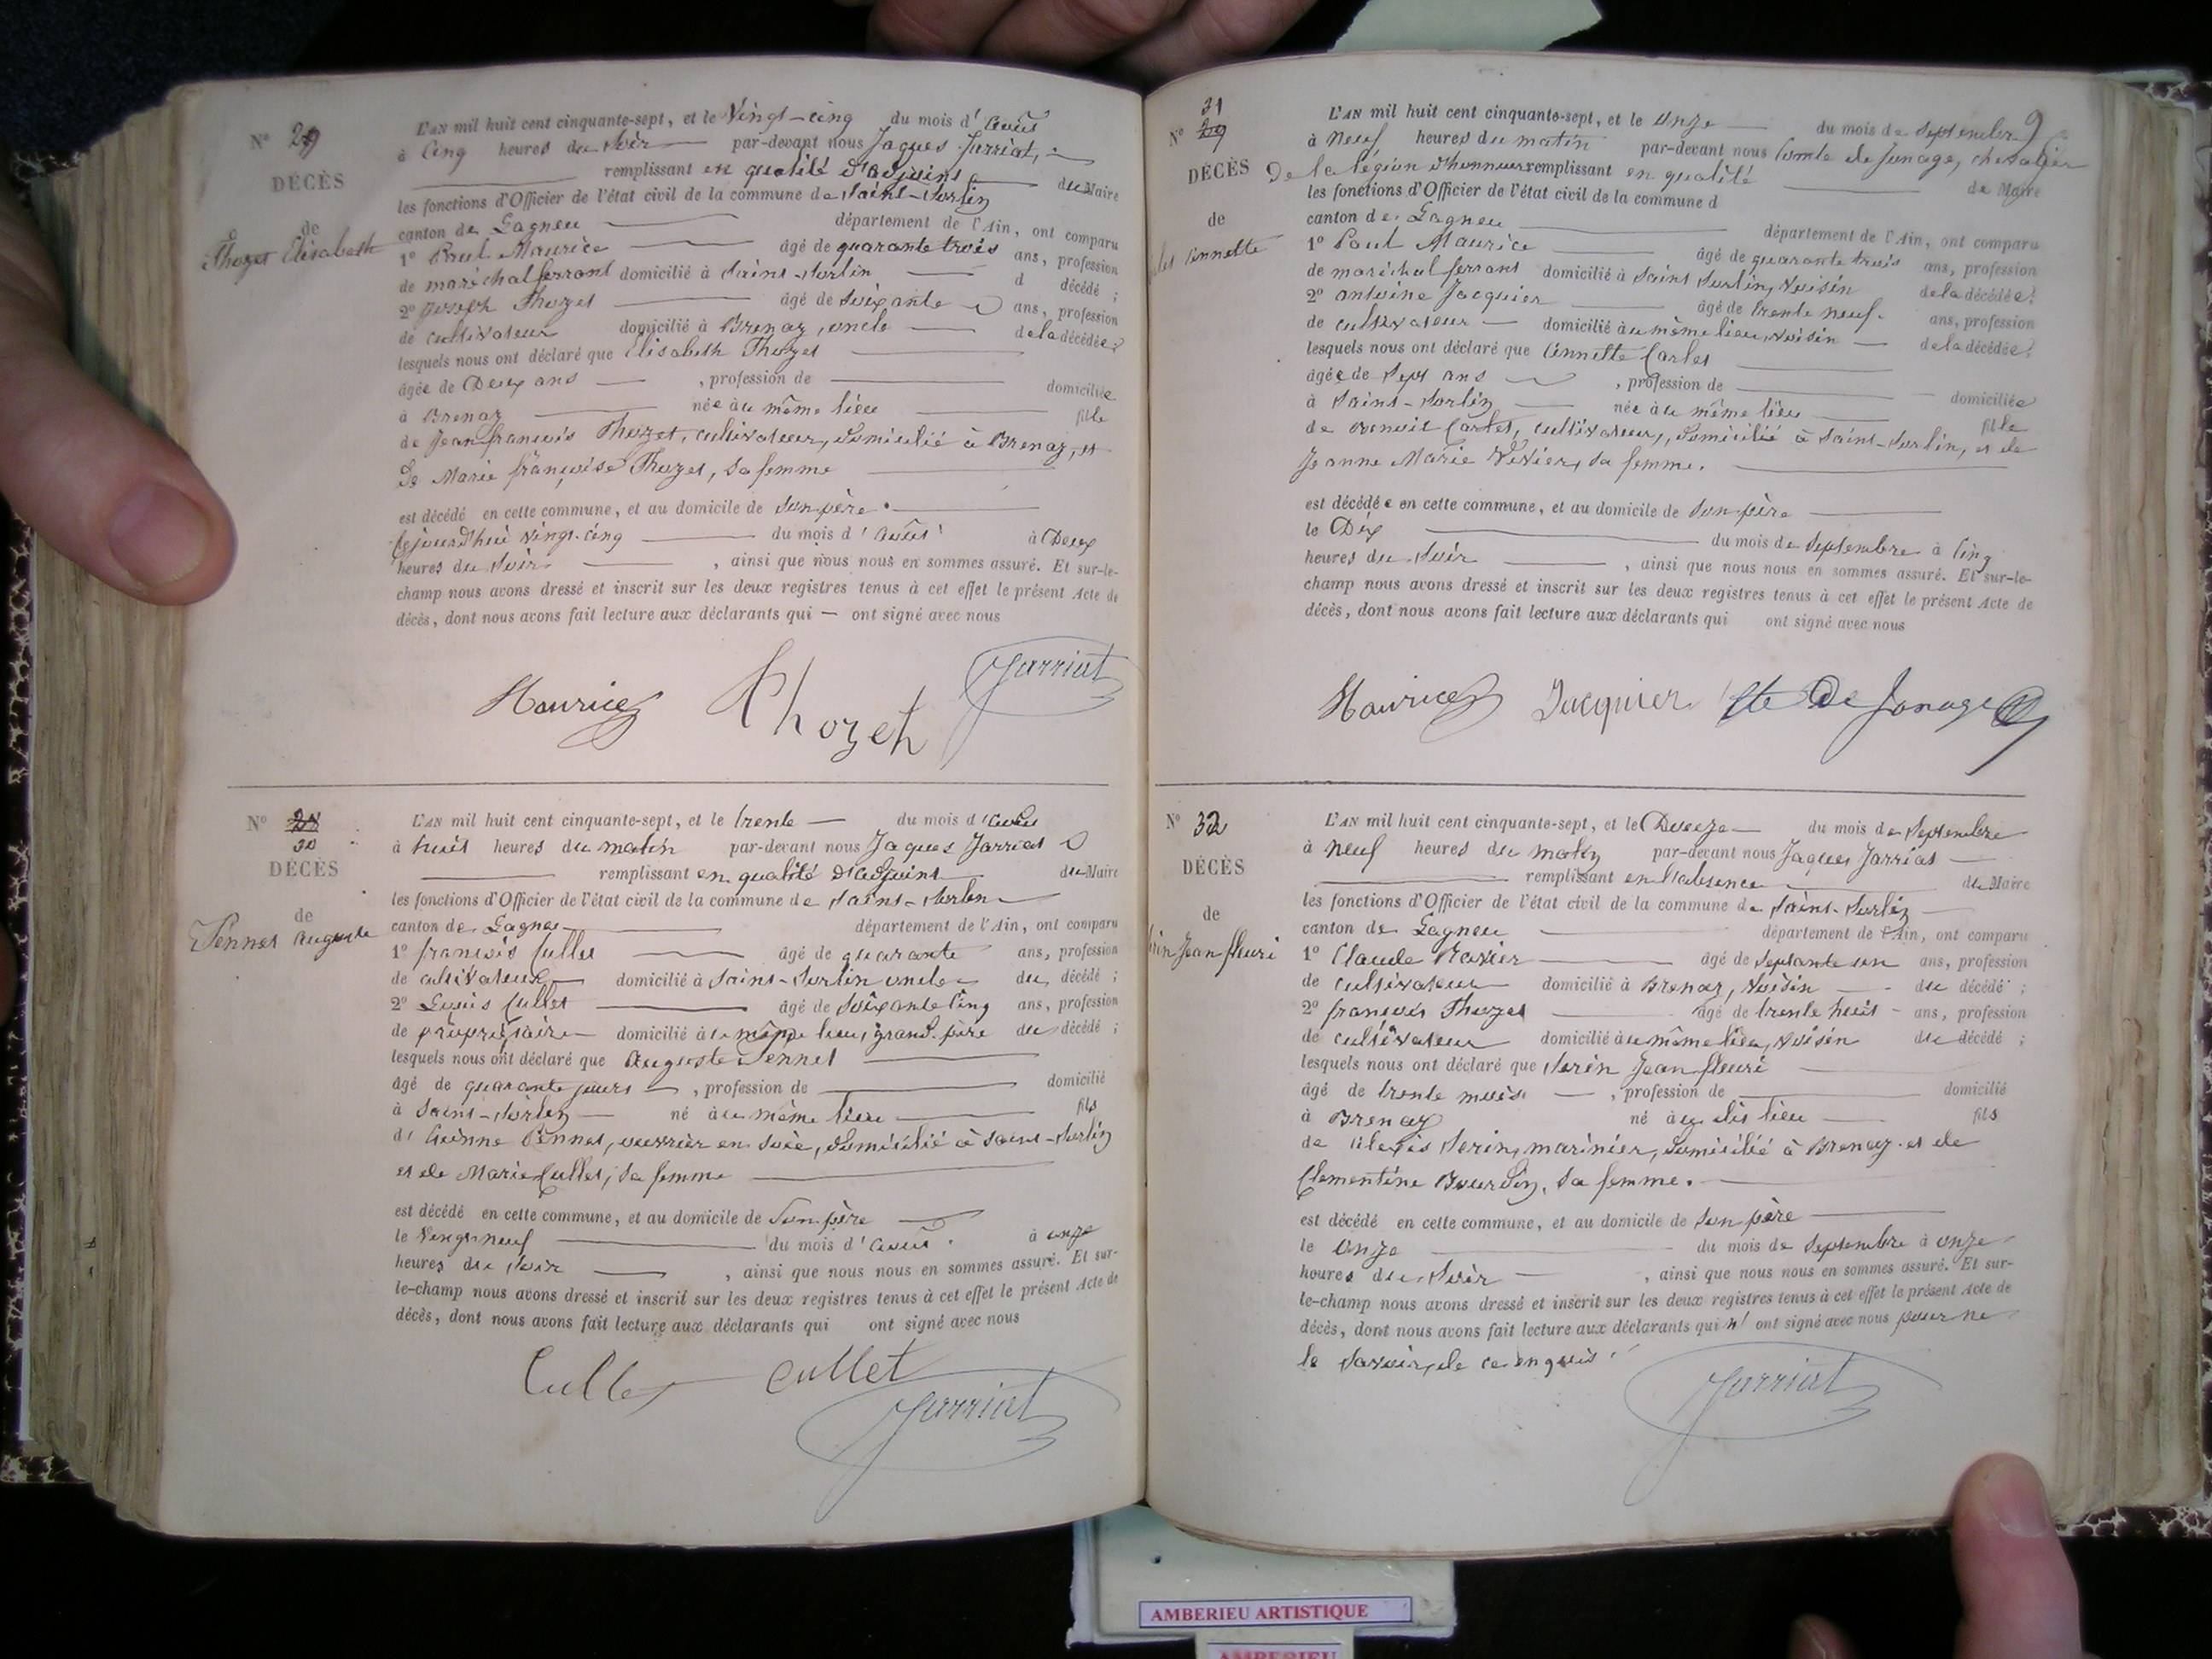 N° 29
DÉCÈS
de
Thozet Elisabeth
L'AN mil huit cent cinquante-sept, et le Vingt-cinq du mois d'août
à Cinq heures du soir par-devant nous Jaques Jarriat,
remplissant en qualité d'adjoint du Maire
les fonctions d'Officier de l'état civil de la commune de Saint-Sorlin
canton de Lagneu département de l'Ain, ont comparu
1° Paul Maurice âgé de quarante trois ans, profession
de maréchal ferrant domicilié à Saint-Sorlin d décédé ;
2° Joseph Thozet âgé de soixante ans, profession
de cultivateur domicilié à Brenaz, oncle de la décédée ;
lesquels nous ont déclaré que Elisabeth Thozet
âgée de Deux ans , profession de domiciliée
à Brenaz née au même lieu fille
de Jean françois Thozet, cultivateur, domicilié à Brenaz, et
De Marie françoise Thozet, sa femme
est décédé en cette commune, et au domicile de son père.
Cejourd'hui vingt-cinq du mois d'août à Deux
heures du soir , ainsi que nous nous en sommes assuré. Et sur-le-
champ nous avons dressé et inscrit sur les deux registres tenus à cet effet le présent Acte de
décès, dont nous avons fait lecture aux déclarants qui — ont signé avec nous
Maurice Thozet Jarriat
N° 28
30
DÉCÈS
de
Pennet Auguste
L'AN mil huit cent cinquante-sept, et le trente du mois d'août
à huit heures du matin par-devant nous Jaques Jarriat
remplissant en qualité d'adjoint du Maire
les fonctions d'Officier de l'état civil de la commune de Saint-Sorlin
canton de Lagneu département de l'Ain, ont comparu
1° françois Cullet âgé de quarante ans, profession
de cultivateur domicilié à Saint-Sorlin oncle du décédé ;
2° Louis Cullet âgé de soixante cinq ans, profession
de propriétaire domicilié à le même lieu, grand-père du décédé ;
lesquels nous ont déclaré que Auguste Pennet
âgé de quarante jours , profession de domicilié
à Saint-Sorlin né au même lieu fils
d' Pennet, ouvrier en soie, domicilié à Saint-Sorlin
et de Marie Cullet, sa femme
est décédé en cette commune, et au domicile de son père
le Vingt neuf du mois d'août. à onze
heures du soir , ainsi que nous nous en sommes assuré. Et sur-
le-champ nous avons dressé et inscrit sur les deux registres tenus à cet effet le présent Acte de
décès, dont nous avons fait lecture aux déclarants qui ont signé avec nous
Cullet Cullet
Jarriat
9
31
N° 29
DÉCÈS
de
Annette
L'AN mil huit cent cinquante-sept, et le onze du mois de septembre
à neuf heures du matin par-devant nous Comte de Jonage, chevalier
De la légion d'honneur remplissant en qualité de Maire
les fonctions d'Officier de l'état civil de la commune d
canton de Lagneu département de l'Ain, ont comparu
1° Paul Maurice âgé de quarante trois ans, profession
de maréchal ferrant domicilié à Saint Sorlin, voisin de la décédée ;
2° antoine Jacquier âgé de trente neuf. ans, profession
de cultivateur domicilié au même lieu, voisin de la décédée ;
lesquels nous ont déclaré que Annette Carlet
âgée de sept ans , profession de domiciliée
à Saint-Sorlin née au même lieu fille
de Benoit Carlet, cultivateur, domicilié à Saint-Sorlin, et de
Jeanne Marie sa femme.
est décédée en cette commune, et au domicile de son père
le Dix du mois de septembre à Cinq
heures du soir , ainsi que nous nous en sommes assuré. Et sur-le-
champ nous avons dressé et inscrit sur les deux registres tenus à cet effet le présent Acte de
décès, dont nous avons fait lecture aux déclarants qui ont signé avec nous
Maurice Jacquier Cte De Jonage
N° 32
DÉCÈS
de
Jean fleuri
L'AN mil huit cent cinquante-sept, et le Douze du mois de septembre
à neuf heures du matin par-devant nous Jaques Jarriat
remplissant en l'absence du Maire
les fonctions d'Officier de l'état civil de la commune de Saint-Sorlin
canton de Lagneu département de l'Ain, ont comparu
1° Claude âgé de septante un ans, profession
de cultivateur domicilié à Brenaz, voisin du décédé ;
2° françois Thozet âgé de trente huit ans, profession
de cultivateur domicilié au même lieu, voisin du décédé ;
lesquels nous ont déclaré que Serin Jean fleuri
âgé de trente mois , profession de domicilié
à Brenaz né au dit lieu fils
de Alexis Serin, marinier, domicilié à Brenaz. et de
Clementine Bourdin, sa femme.
est décédé en cette commune, et au domicile de son père
le onze du mois de septembre à onze
heures du soir , ainsi que nous nous en sommes assuré. Et sur-
le-champ nous avons dressé et inscrit sur les deux registres tenus à cet effet le présent Acte de
décès, dont nous avons fait lecture aux déclarants qui n'ont signé avec nous pour ne
le savoir, de ce enquis.
Jarriat
AMBERIEU ARTISTIQUE
AMBERIEU